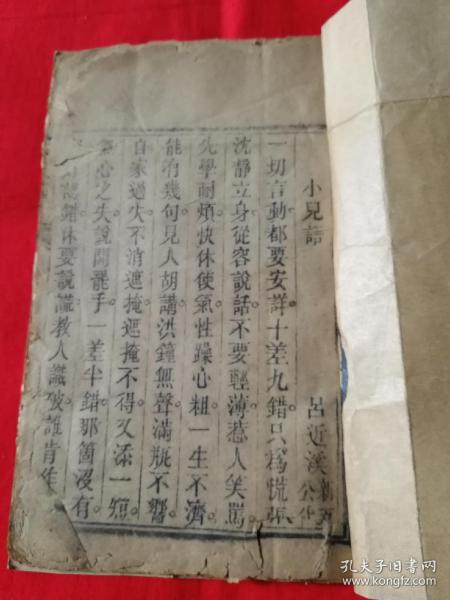 小兒語
呂近溪
一切言動都要安詳十差九錯只爲慌張
沈靜立身從容說話不要輕薄惹人笑罵
先學耐煩快休使氣性躁心粗一生不濟
能有幾句見人胡講洪鐘無聲滿瓶不響
自家過失不消遮掩遮掩不得又添一短
無心之失說開罷手一差半錯那箇沒有
錯休要說謊教人識破誰肯作
孔夫子旧书网
www.kongfz.com